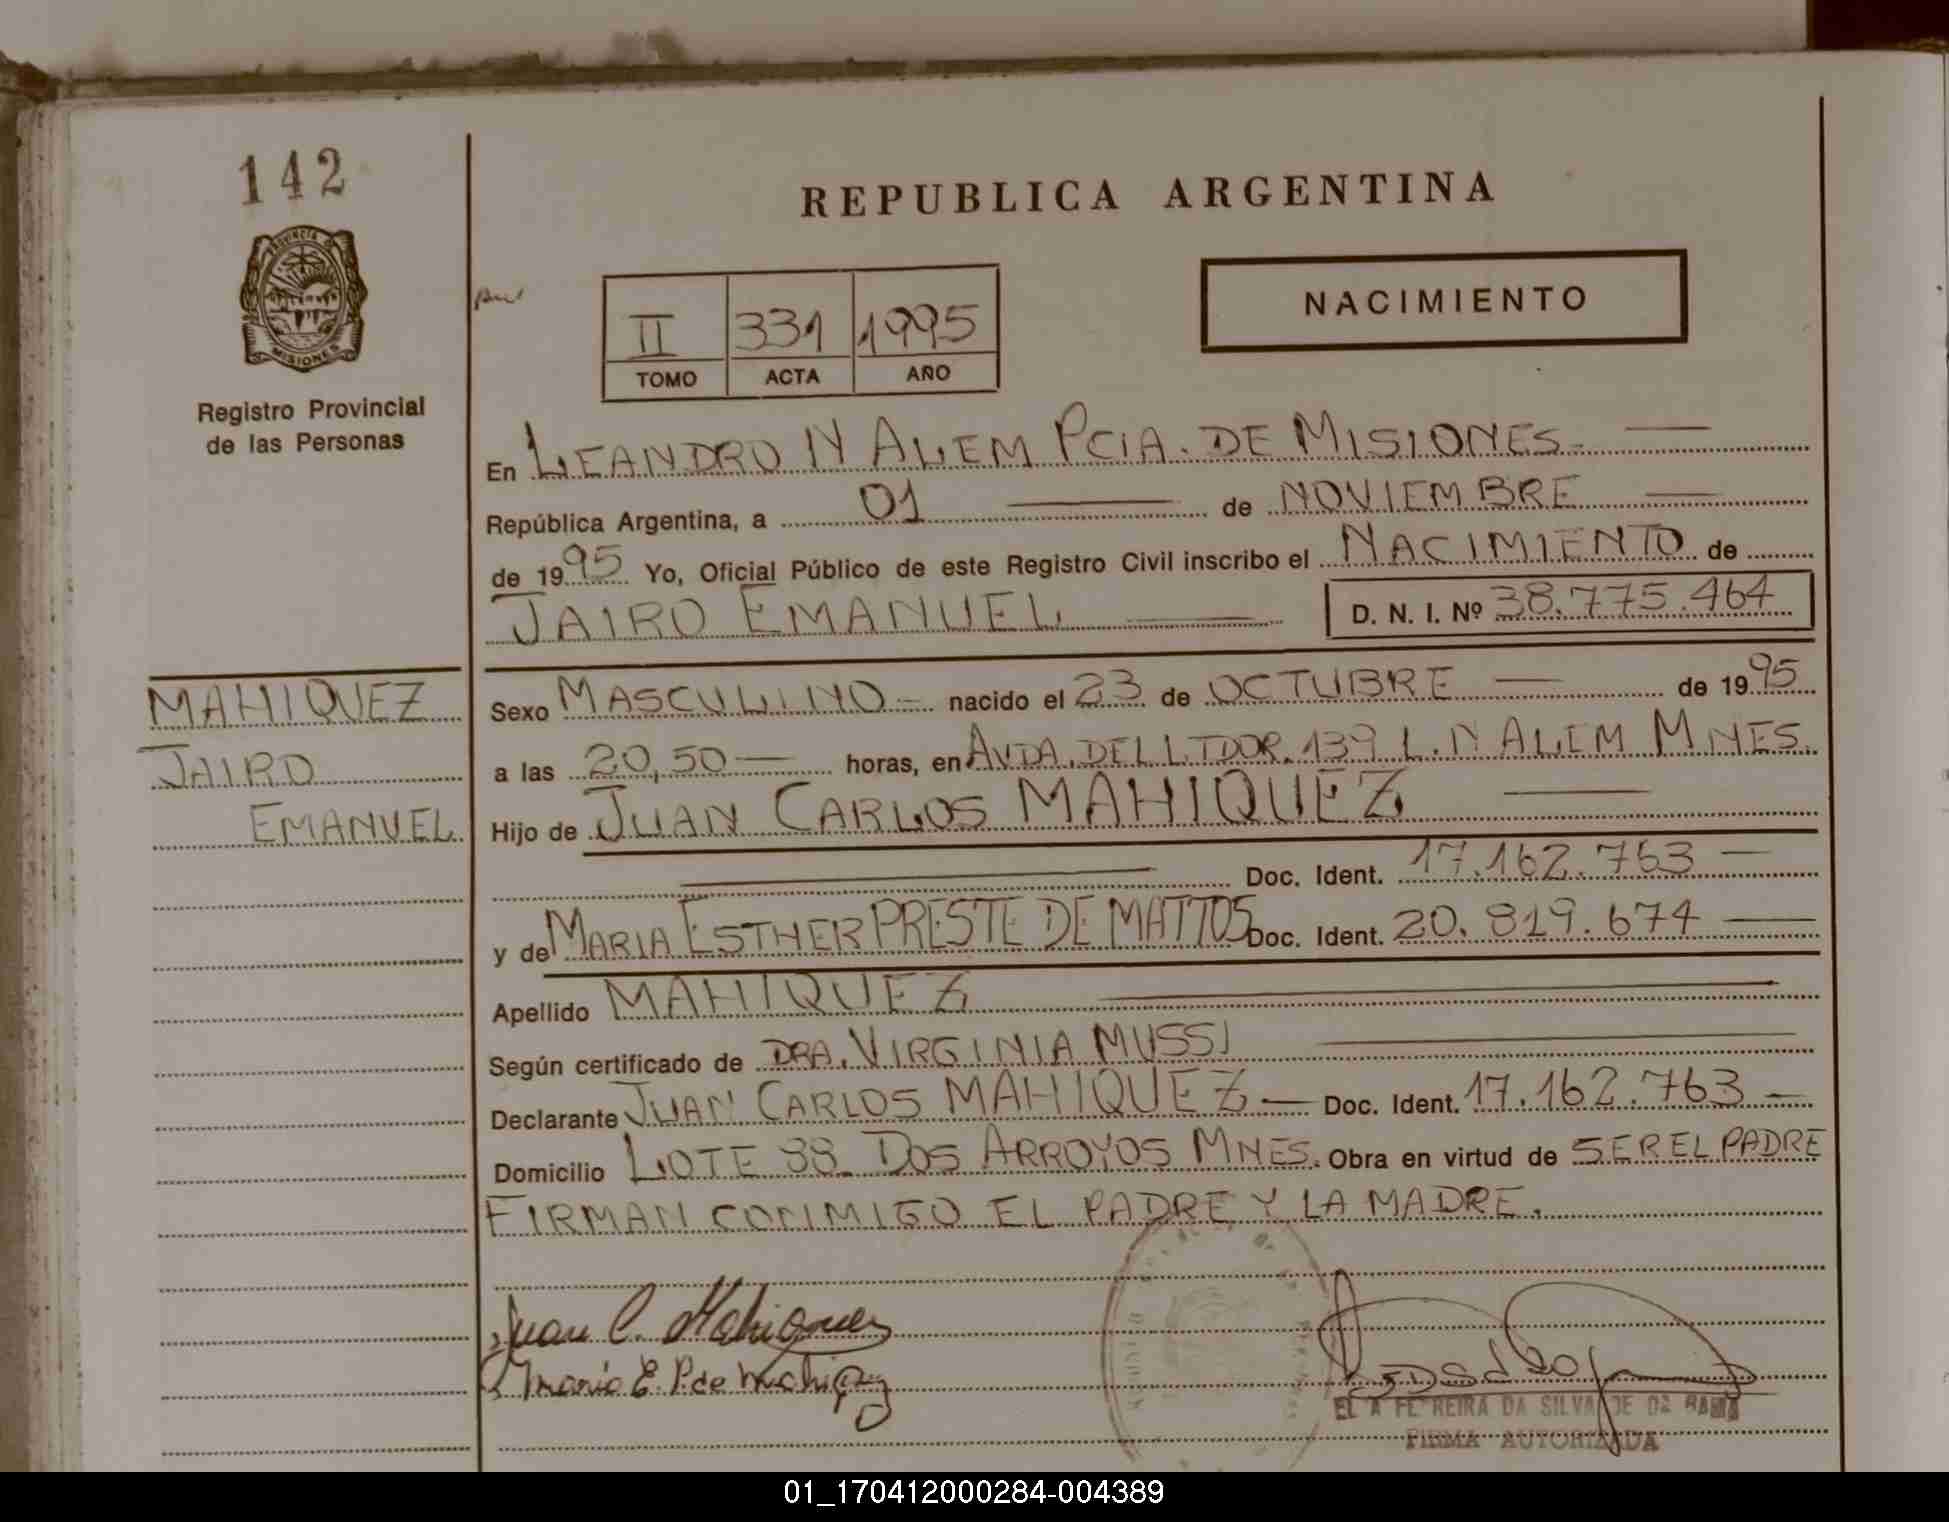 142
REPUBLICA ARGENTINA
PROVINCIA DE
MISIONES
Registro Provincial
de las Personas
II 331 1995
TOMO ACTA AÑO
NACIMIENTO
En LEANDRO N ALEM PCIA. DE MISIONES.
República Argentina, a 01 de NOVIEMBRE
de 1995 Yo, Oficial Público de este Registro Civil inscribo el NACIMIENTO de
JAIRO EMANUEL D. N. I. Nº 38.775.464
MAHIQUEZ
JAIRO
EMANUEL
Sexo MASCULINO nacido el 23 de OCTUBRE de 1995
a las 20,50 horas, en AVDA. DEL L.TDOR. 139 L. N ALEM MNES.
Hijo de JUAN CARLOS MAHIQUEZ
Doc. Ident. 17.162.763
y de MARIA ESTHER PRESTE DE MATTOS Doc. Ident. 20.819.674
Apellido MAHIQUEZ
Según certificado de DRA. VIRGINIA MUSSI
Declarante JUAN CARLOS MAHIQUEZ Doc. Ident. 17.162.763
Domicilio LOTE 88 DOS ARROYOS MNES. Obra en virtud de SER EL PADRE
FIRMAN CONMIGO EL PADRE Y LA MADRE.
Juan C. Mahiquez
Maria E. P. de Mahiquez
FERREIRA DA SILVA DE
FIRMA AUTORIZADA
01_170412000284-004389